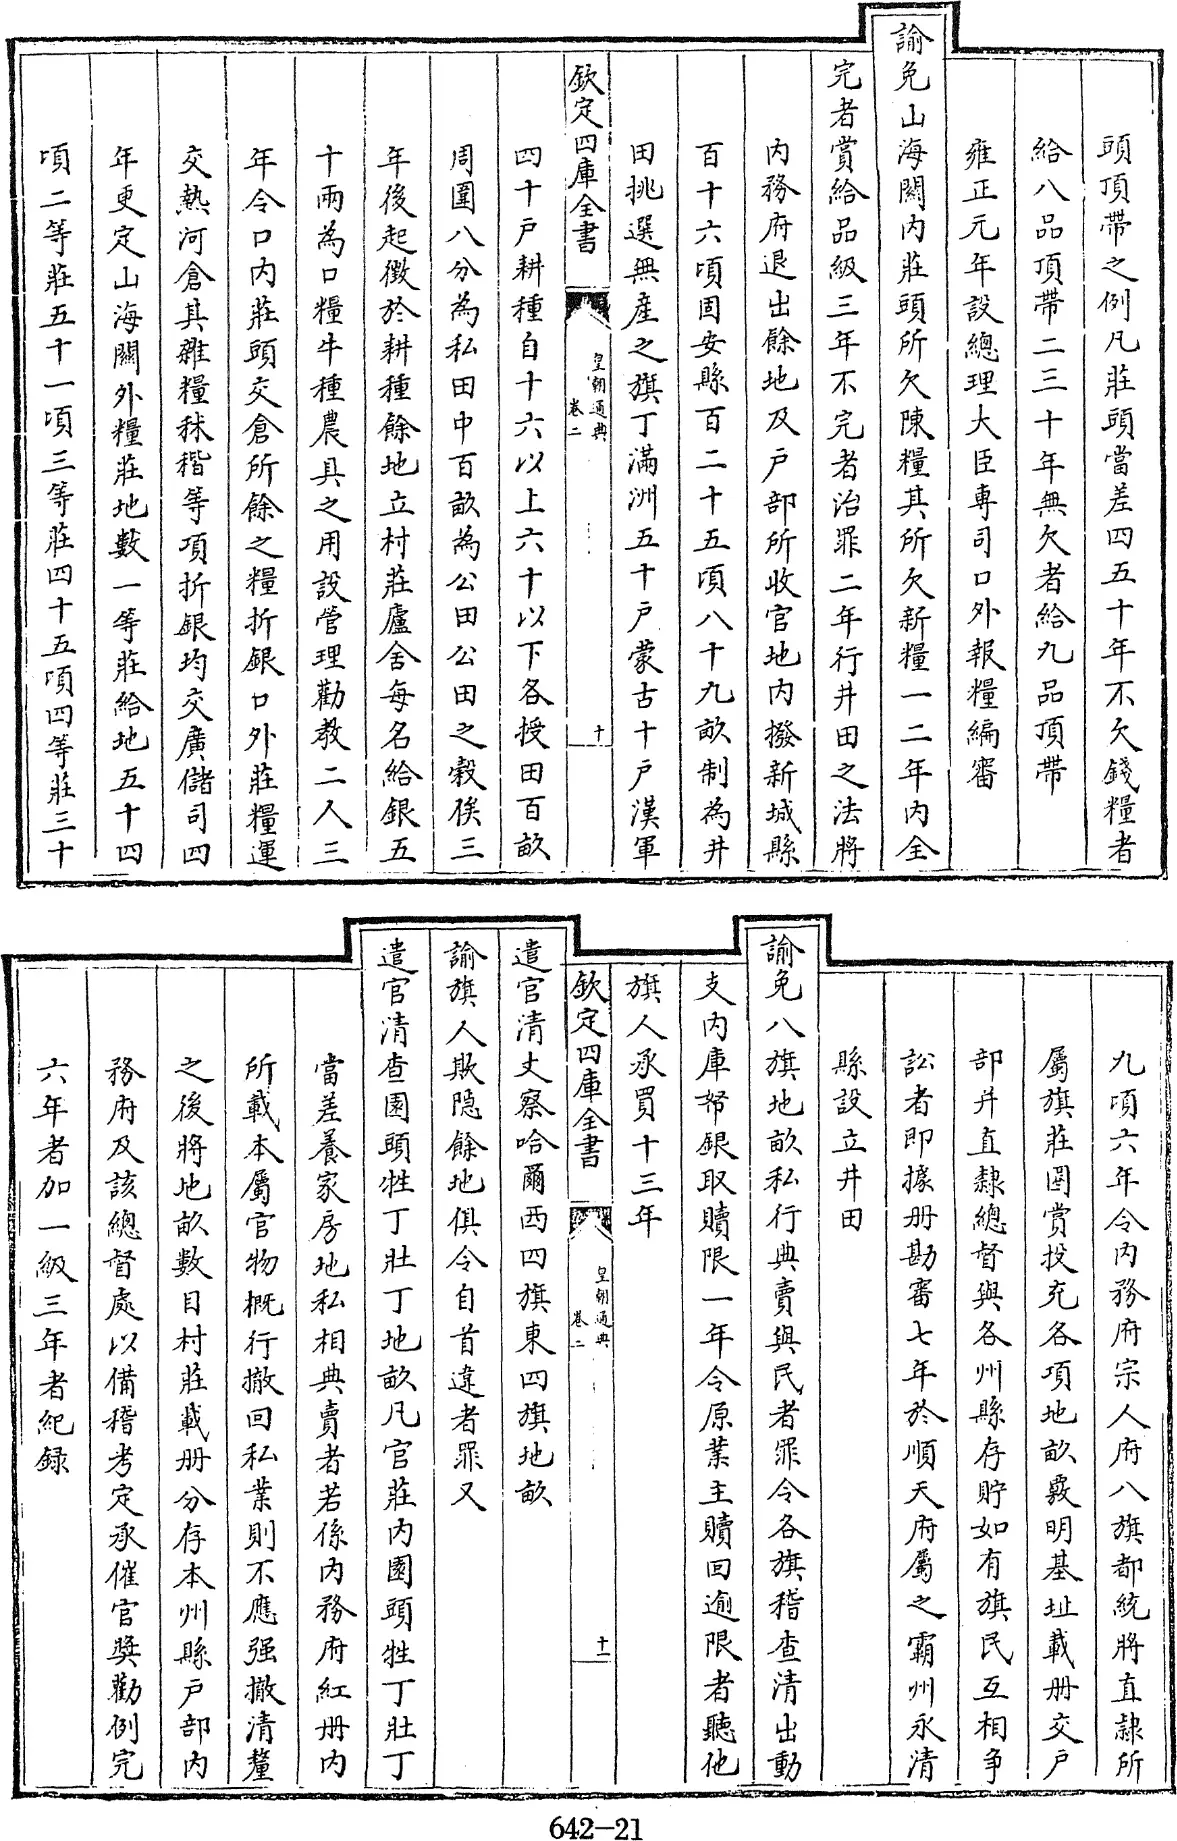 頭頂帶之例凡莊頭當差四五十年不欠錢糧者
給八品頂帶二三十年無欠者給九品頂帶
雍正元年設總理大臣專司口外報糧編審
諭免山海關內莊頭所欠陳糧其所欠新糧一二年內全
完者賞給品級三年不完者治罪二年行井田之法將
內務府退出餘地及戶部所收官地內撥新城縣
百十六頃固安縣百二十五頃八十九畝制為井
田挑選無產之旗丁滿洲五十戶蒙古十戶漢軍
欽定四庫全書
皇朝通典
卷二
十
四十戶耕種自十六以上六十以下各授田百畝
周圍八分為私田中百畝為公田公田之穀俟三
年後起徵於耕種餘地立村莊廬舍每名給銀五
十兩為口糧牛種農具之用設管理勸教二人三
年令口內莊頭交倉所餘之糧折銀口外莊糧運
交熱河倉其雜糧秫稭等項折銀均交廣儲司四
年更定山海關外糧莊地數一等莊給地五十四
頃二等莊五十一頃三等莊四十五頃四等莊三十
九頃六年令內務府宗人府八旗都統將直隸所
屬旗莊圈賞投充各項地畝覈明基址載冊交戶
部并直隸總督與各州縣存貯如有旗民互相爭
訟者即據冊勘審七年於順天府屬之霸州永清
縣設立井田
諭免八旗地畝私行典賣與民者罪令各旗稽查清出動
支內庫帑銀取贖限一年令原業主贖回逾限者聽他
旗人承買十三年
欽定四庫全書
皇朝通典
卷二
十一
遣官清丈察哈爾西四旗東四旗地畝
諭旗人欺隱餘地俱令自首違者罪又
遣官清查園頭牲丁壯丁地畝凡官莊內園頭牲丁壯丁
當差養家房地私相典賣者若係內務府紅冊內
所載本屬官物概行撤回私業則不應强撤清釐
之後將地畝數目村莊載冊分存本州縣戶部內
務府及該總督處以備稽考定承催官獎勸例完
六年者加一級三年者紀録
642-21